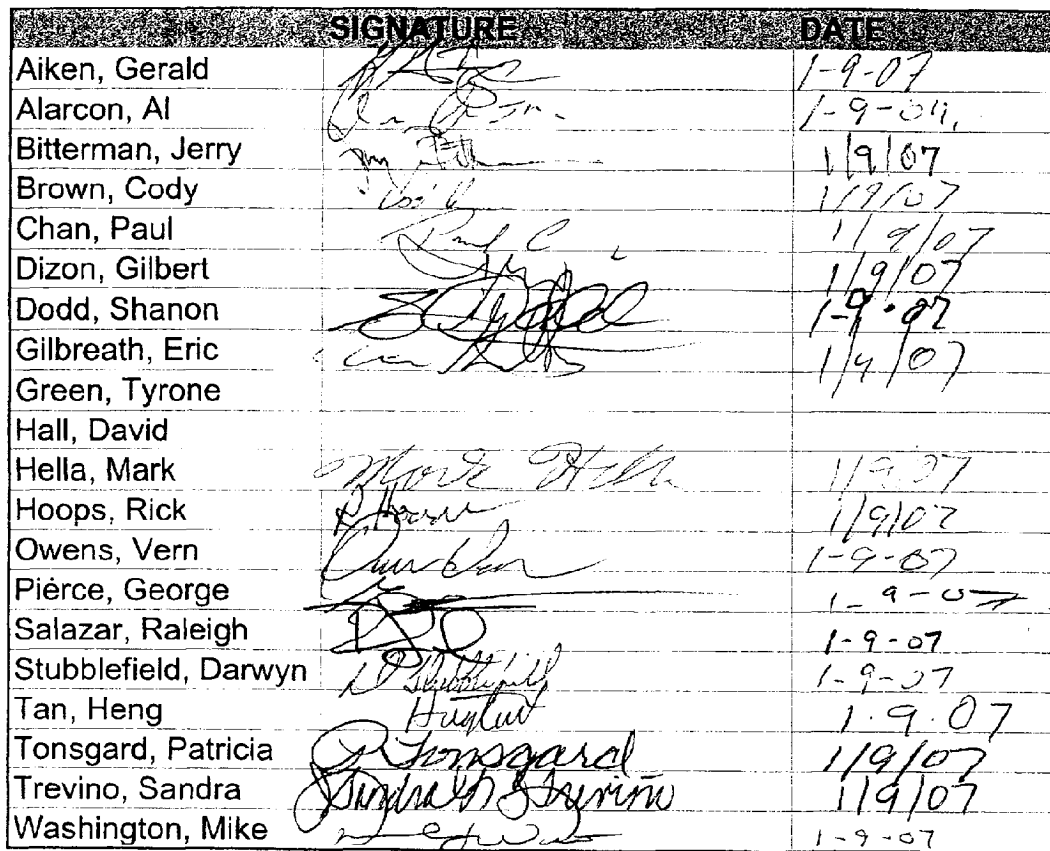 SIGNATURE DATE
Aiken, Gerald 1-9-07
Alarcon, Al 1-9-
Bitterman, Jerry 1/9/07
Brown, Cody 1/9/07
Chan, Paul Paul C 1/9/07
Dizon, Gilbert 1/9/07
Dodd, Shanon 1-9-07
Gilbreath, Eric 1/9/07
Green, Tyrone
Hall, David
Hella, Mark Mark Hella 1/9/07
Hoops, Rick R Hoops 1/9/07
Owens, Vern 1-9-07
Pierce, George 1-9-07
Salazar, Raleigh 1-9-07
Stubblefield, Darwyn D Stubblefield 1-9-07
Tan, Heng 1.9.07
Tonsgard, Patricia P Tonsgard 1/9/07
Trevino, Sandra Sandra Trevino 1/9/07
Washington, Mike 1-9-07